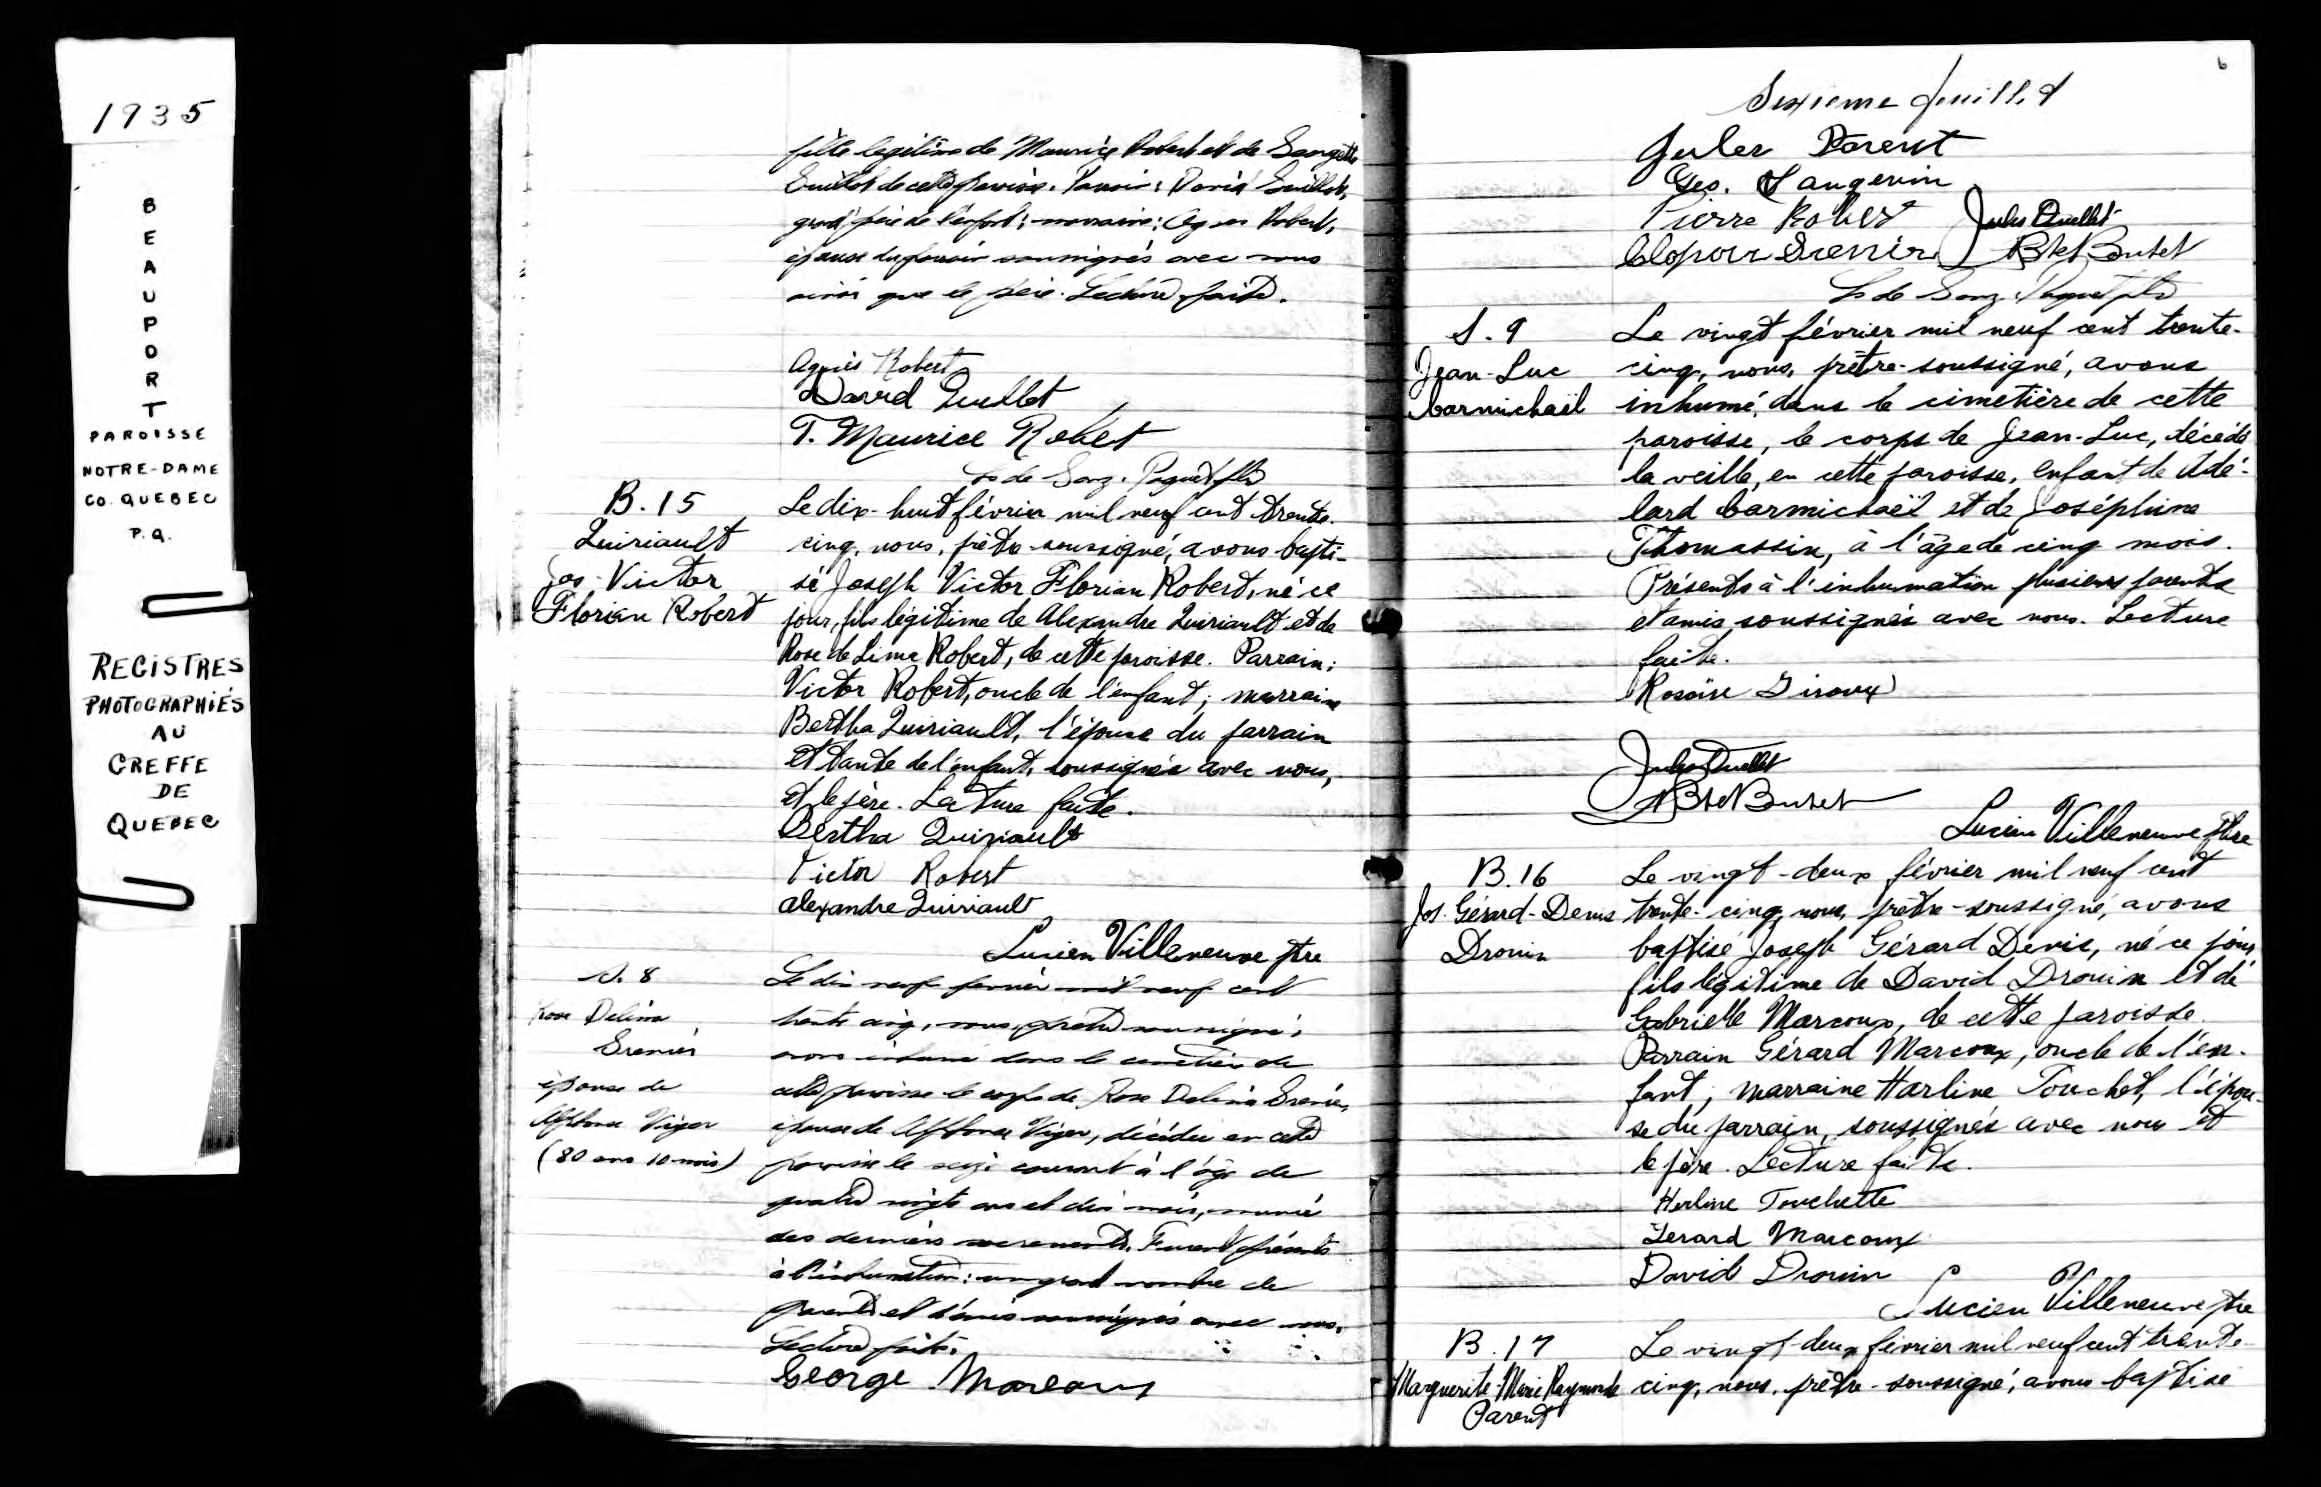 1935
BEAUPORT
PAROISSE
NOTRE-DAME
CO. QUEBEC
P.Q.
REGISTRES
PHOTOGRAPHIÉS
AU
GREFFE
DE
QUEBEC
fille légitime de Maurice Robert et de
de cette paroisse. Parrain: David
grand'père de l'enfant; marraine: Agnes Robert,
épouse du parrain soussignés avec nous
ainsi que le père. Lecture faite.
Agnès Robert
David
T. Maurice Robert
B. 15
Quiriault
Jos-Victor
Florian Robert
Le dix-huit février mil neuf cent trente-
cinq, nous, prêtre-soussigné, avons bapti-
sé Joseph Victor Florian Robert, né ce
jour, fils légitime de Alexandre Quiriault et de
Rose de Lima Robert, de cette paroisse. Parrain:
Victor Robert, oncle de l'enfant; marraine
Bertha Quiriault, l'épouse du parrain
et tante de l'enfant, soussignés avec nous,
et le père. Lecture faite.
Bertha Quiriault
Victor Robert
Alexandre Quiriault
Lucien Villeneuve ptre
S. 8
Rose Délima
Grenier
épouse de
Alphonse Viger
(80 ans 10 mois)
Le dix neuf février mil neuf cent
trente cinq, nous, prêtre soussigné,
avons inhumé dans le cimetière de
cette paroisse le corps de Rose Délima Grenier,
épouse de Alphonse Viger, décédée en cette
paroisse le seize courant à l'âge de
quatre vingts ans et dix mois, munie
des derniers sacrements. Furent présents
à l'inhumation: un grand nombre de
parents et d'amis soussignés avec nous.
Lecture faite.
George Marcoux
6
Sixieme feuillet
Jules Parent
Geo. Langevin
Pierre Robert Jules Ouellet
Grenier
S. 9
Jean-Luc
Carmichaël
Le vingt février mil neuf cent trente-
cinq, nous, prêtre-soussigné, avons
inhumé, dans le cimetière de cette
paroisse, le corps de Jean-Luc, décédé
la veille, en cette paroisse, enfant de Adé-
lard Carmichaël et de Joséphine
Thomassin, à l'âge de cinq mois.
Présents à l'inhumation plusieurs parents
et amis soussignés avec nous. Lecture
faite.
Rosaire Giroux
Jules Ouellet
Lucien Villeneuve ptre
B. 16
Jos. Gérard-Denis
Drouin
Le vingt-deux février mil neuf cent
trente-cinq, nous, prêtre-soussigné, avons
baptisé Joseph Gérard Denis, né ce jour,
fils légitime de David Drouin et de
Gabrielle Marcoux, de cette paroisse.
Parrain Gérard Marcoux, oncle de l'en-
fant; marraine Harline Touchet, l'épou-
se du parrain, soussignés avec nous et
le père. Lecture faite.
Herline Touchette
Gerard Marcoux
David Drouin
Lucien Villeneuve ptre
B. 17
Marguerite Marie Raymonde
Parent
Le vingt-deux février mil neuf cent trente-
cinq, nous, prêtre-soussigné, avons baptisé